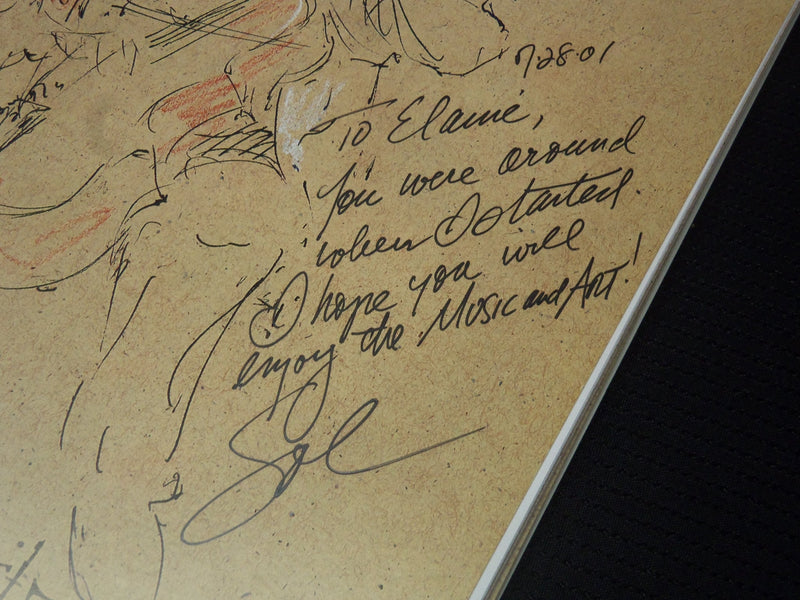 7-28-01
To Elaine,
You were around
when I started.
I hope you will
enjoy the Music and ART!
Sol